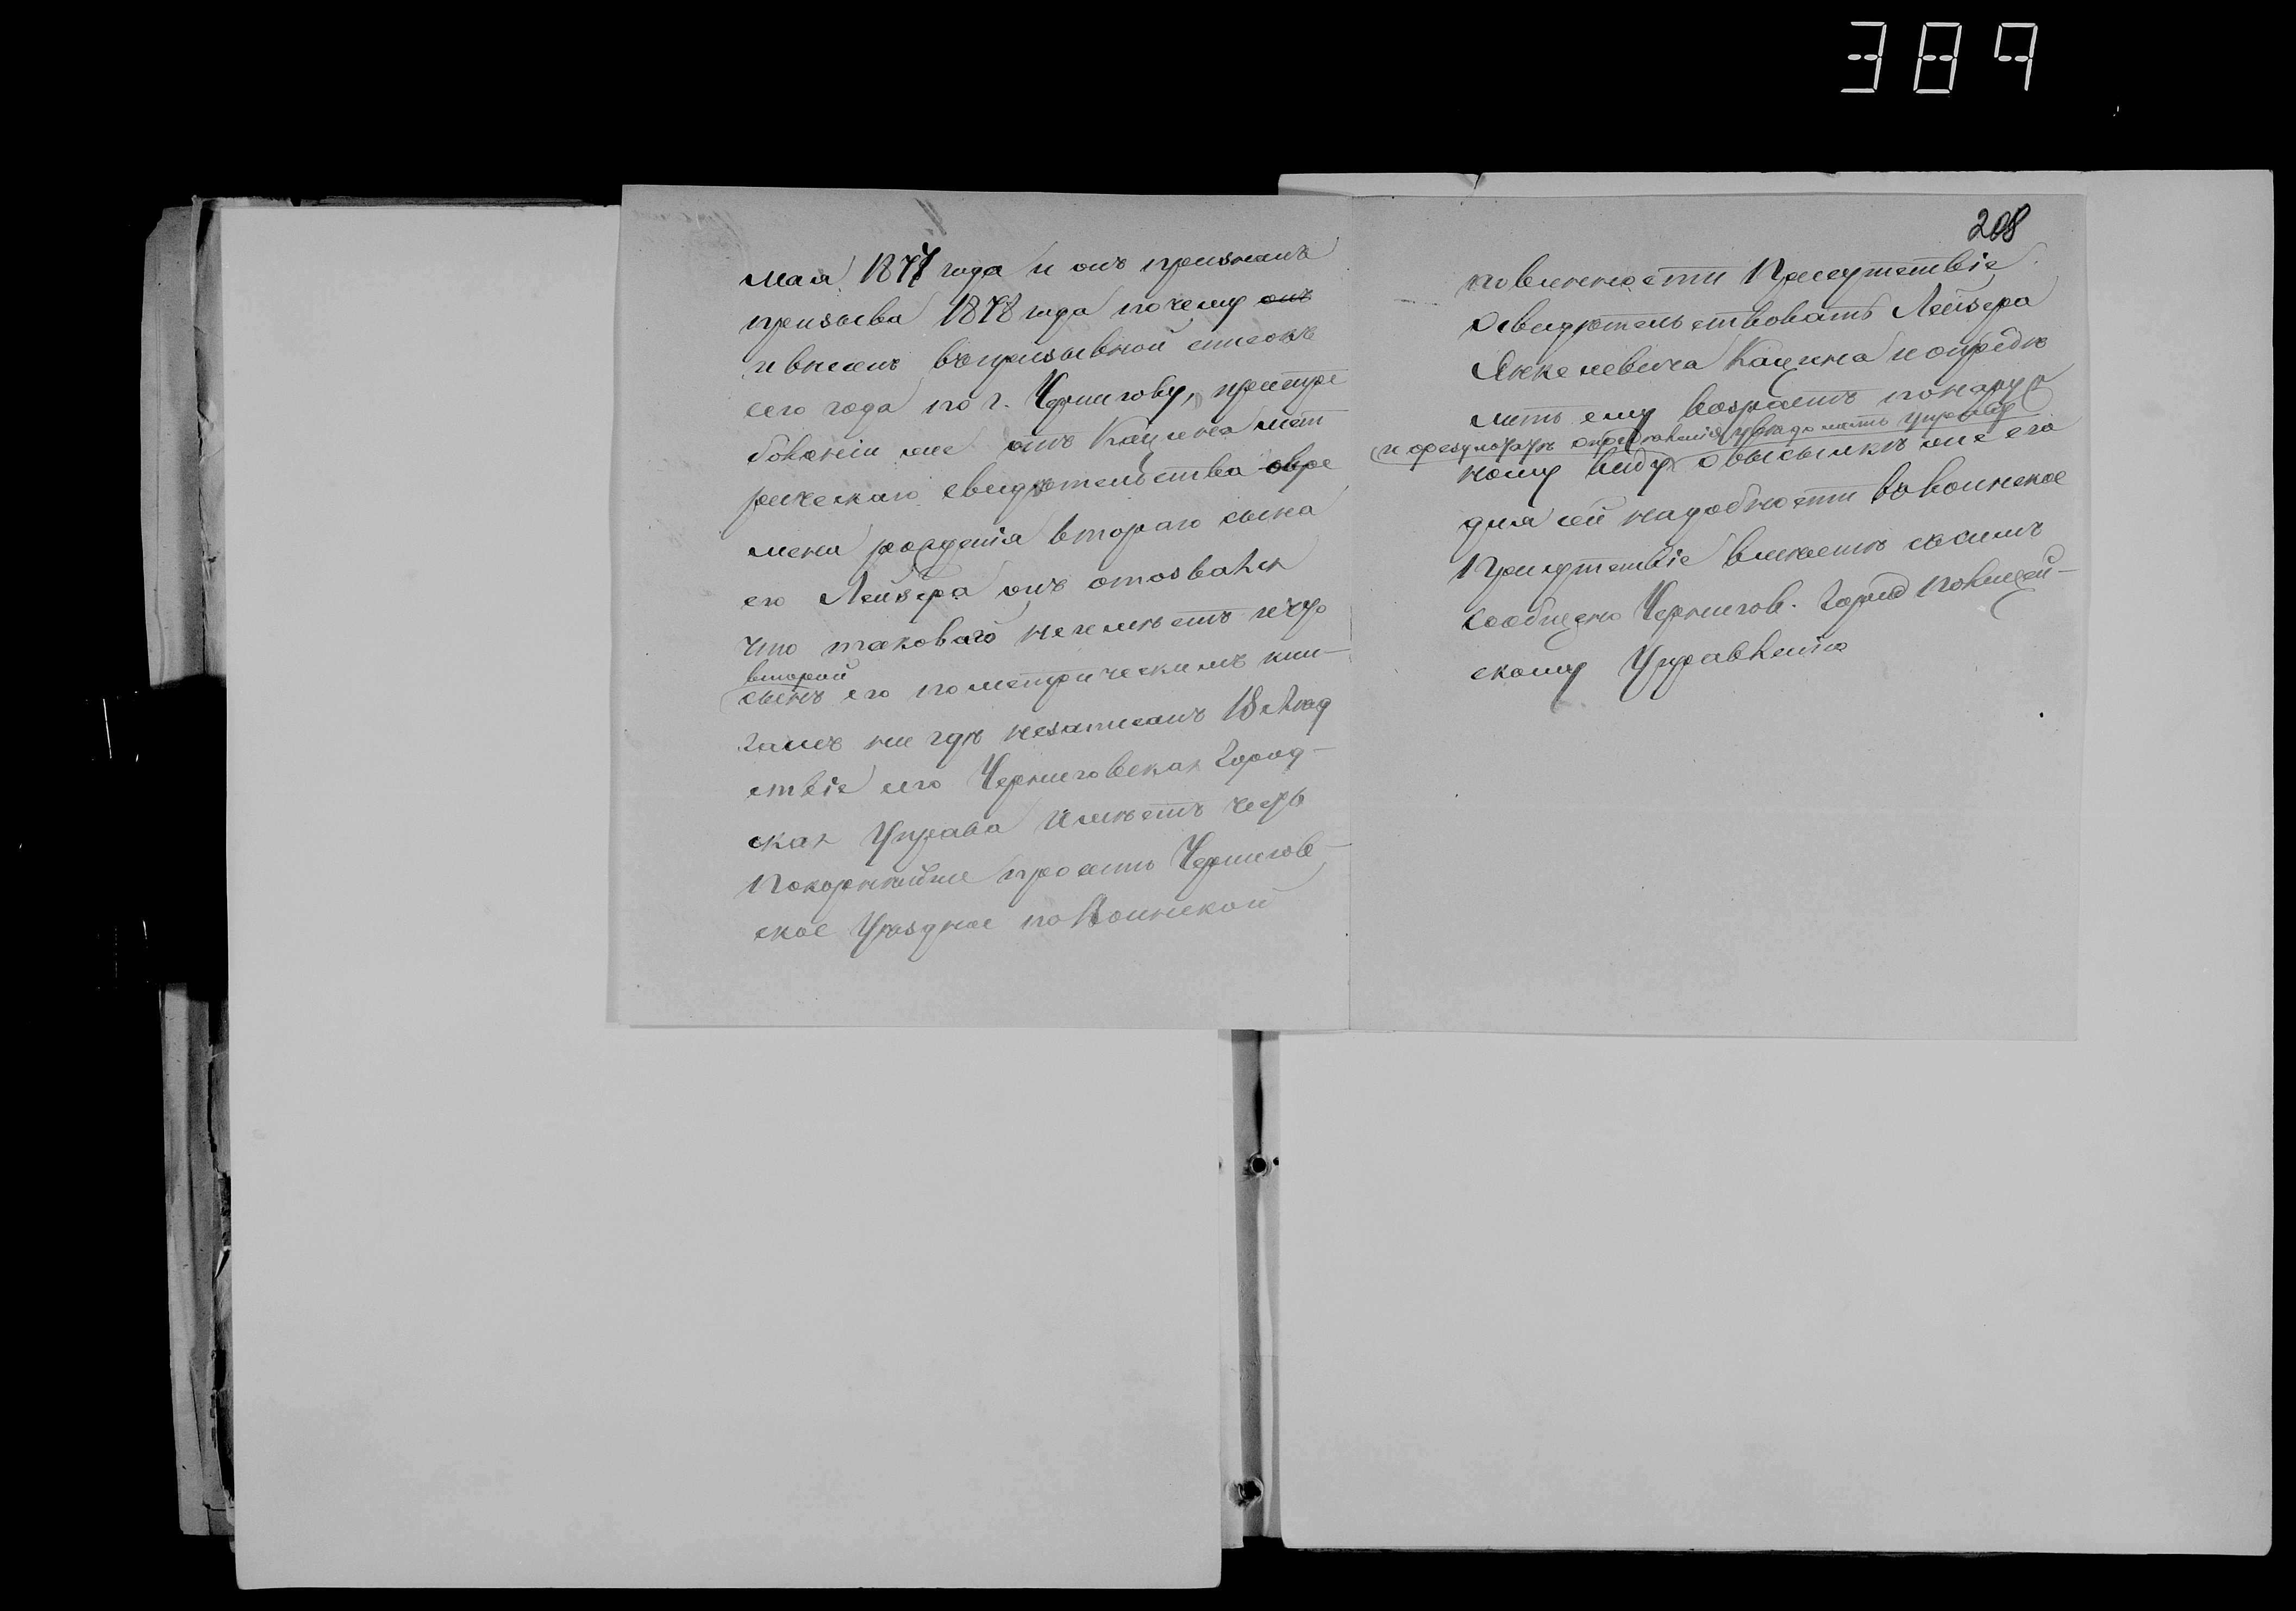 389
мая 1877 года и онъ призванъ
призыва 1878 года почему онъ
и внесенъ въ призывной списокъ
сего года по г. Чернигову, при тре
бованіи же отъ Кацина мет
рическаго свидѣтельства о вре
мени рожденія втораго сына
его Лейзера онъ отозвался
что таковаго не имѣетъ и что
второй
сынъ его по метрическимъ кни-
гамъ ни гдѣ не записанъ. Въ слѣд
ствіе сего Черниговская Город-
ская Управа имѣетъ честь
покорнѣйше просить Чернигов-
ское Уѣздное по Воинской
208
повинности Присутствіе
освидѣтельствовать Лейзера
Янкелевича Кацина и опредѣ
лить ему возрастъ по наруж
и о результатѣ опредѣленія увѣдомить управу
ному виду о высылкѣ же его
для сей надобности въ Воинское
Присутствіе вмѣстѣ съ симъ
сообщено Чернигов. Город Полицей-
скому Управленію